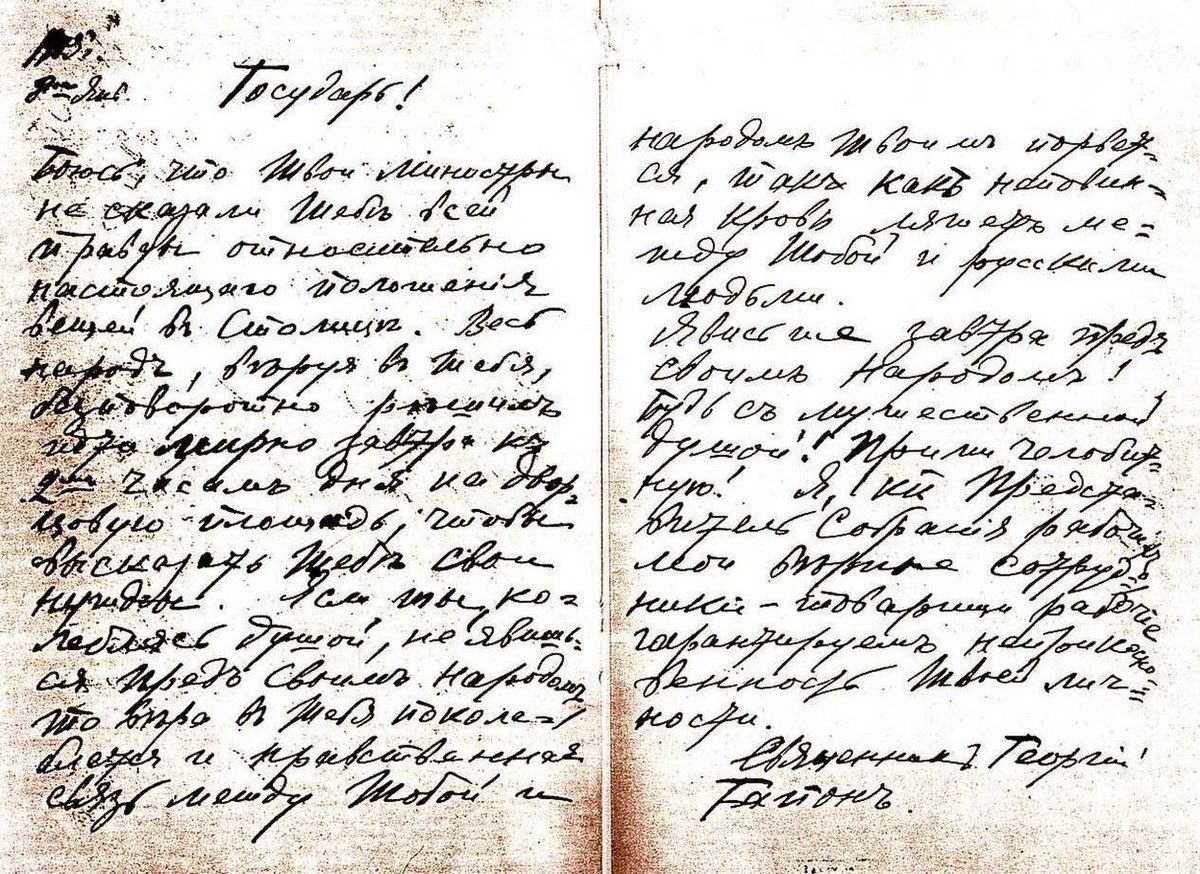 8го Янв.
Государь!
Боюсь, что Твои Министры
не сказали Тебѣ всей
правды относительно
настоящаго положенія
вещей въ Столицѣ. Весь
народъ, вѣруя въ Тебя,
безповоротно рѣшилъ
мирно завтра къ
2мъ часамъ дня на двор-
цовую площадь, чтобы
высказать Тебѣ свои
нужды. Если ты, ко-
леблясь душой, не явишь-
ся предъ своимъ народомъ,
то вѣра въ Тебя поколе-
блется и нравственная
связь между Тобой и
народомъ Твоимъ порвет-
ся, такъ какъ неповин-
ная кровь ляжетъ ме-
жду Тобой и русскими
людьми.
Явись же завтра предъ
своимъ Народомъ!
Будь съ мужественной
душой! Прими челобит-
ную! Я, Предста-
витель Собранія рабочихъ,
мои вѣрные сотруд-
ники-товарищи рабочіе
гарантируемъ неприкосно-
венность Твоей лич-
ности.
Священникъ Георгій
Гапонъ.